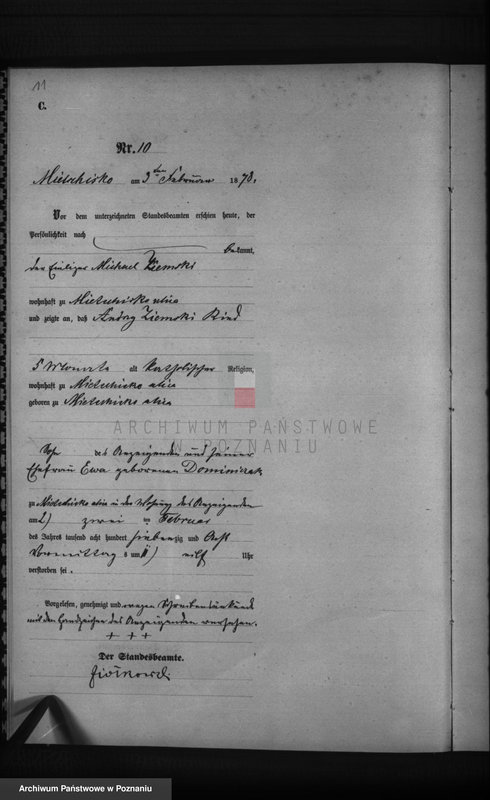 11
C.
Nr. 10
Mietschisko am 3ten Februar 1878.
Vor dem unterzeichneten Standesbeamten erschien heute, der
Persönlichkeit nach
bekannt,
der Michael Ziemski
wohnhaft zu Mietschisko
und zeigte an, daß Andrzy Ziemski Kind
5 Monate alt katholischer Religion,
wohnhaft zu Mietschisko
geboren zu Mietschisko
ARCHIWUM PAŃSTWOWE
W POZNANIU
des Anzeigenden und seiner
Ehefrau Ewa geborenen Dominiczak
zu Mietschisko in der Wohnung des Anzeigenden
am 2) zwei ten Februar
des Jahres tausend acht hundert siebenzig und Acht
Vormittag s um 11) eilf Uhr
verstorben sei.
Vorgelesen, genehmigt und wegen
mit den Handzeichen des Anzeigenden versehen.
+ + +
Der Standesbeamte.
Archiwum Państwowe w Poznaniu